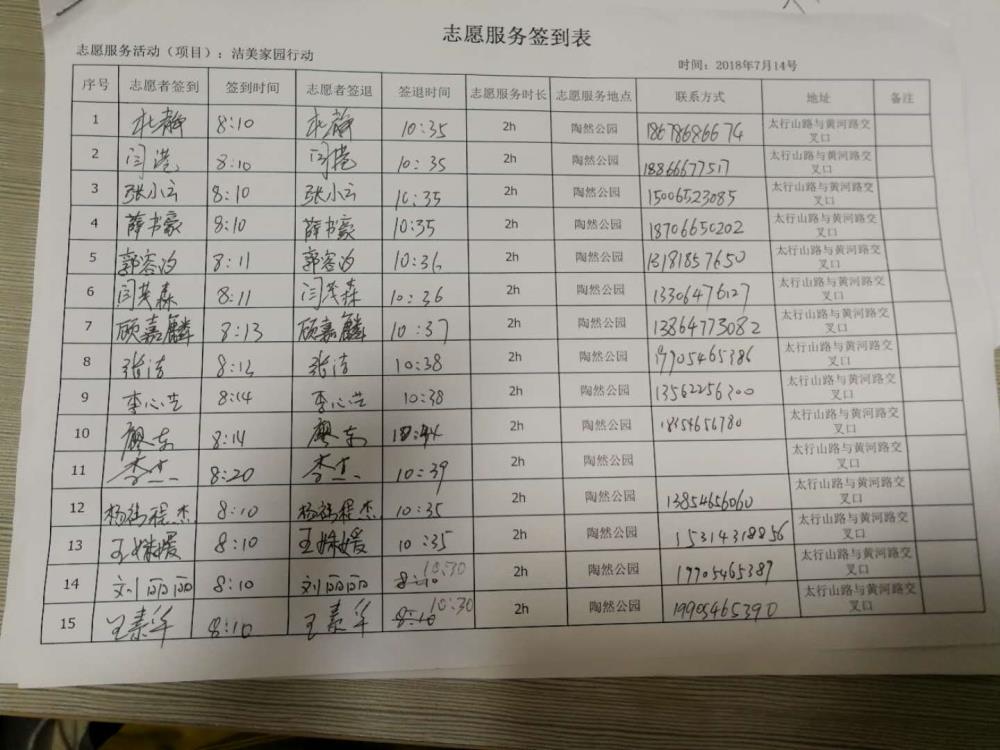 志愿服务签到表
志愿服务活动（项目）：洁美家园行动
时间：2018年7月14号
序号 志愿者签到 签到时间 志愿者签退 签退时间 志愿服务时长 志愿服务地点 联系方式 地址 备注
1 杜静 8:10 杜静 10:35 2h 陶然公园 18678686674 太行山路与黄河路交
叉口
2 闫港 8:10 闫港 10:35 2h 陶然公园 18866677517 太行山路与黄河路交
叉口
3 张小云 8:10 张小云 10:35 2h 陶然公园 15006523085 太行山路与黄河路交
叉口
4 薛书豪 8:10 薛书豪 10:35 2h 陶然公园 18706650202 太行山路与黄河路交
叉口
5 郭容汐 8:11 郭容汐 10:36 2h 陶然公园 13181857650 太行山路与黄河路交
叉口
6 闫茂森 8:11 闫茂森 10:36 2h 陶然公园 13306476127 太行山路与黄河路交
叉口
7 顾嘉麟 8:13 顾嘉麟 10:37 2h 陶然公园 13864773082 太行山路与黄河路交
叉口
8 张洁 8:13 张洁 10:38 2h 陶然公园 19905465386 太行山路与黄河路交
叉口
9 李心芸 8:14 李心芸 10:38 2h 陶然公园 13562256300 太行山路与黄河路交
叉口
10 廖东 8:14 廖东 10:44 2h 陶然公园 18454656780 太行山路与黄河路交
叉口
11 李杰 8:20 李杰 10:39 2h 陶然公园 太行山路与黄河路交
叉口
12 8:10 10:35 2h 陶然公园 13854656060 太行山路与黄河路交
叉口
13 王姝媛 8:10 王姝媛 10:35 2h 陶然公园 15314318856 太行山路与黄河路交
叉口
14 刘丽丽 8:10 刘丽丽 8:10 10:30 2h 陶然公园 17705465387 太行山路与黄河路交
叉口
15 王素华 8:10 王素华 8:10 10:30 2h 陶然公园 19905465390 太行山路与黄河路交
叉口